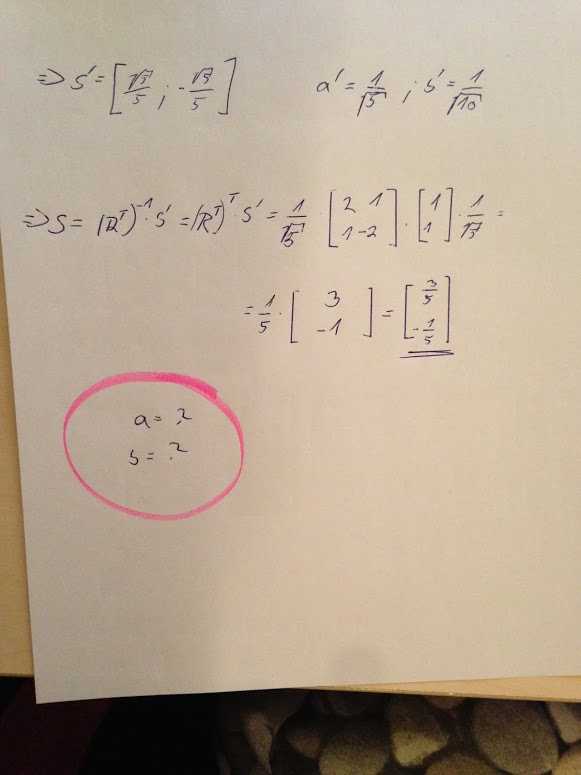 => S' = [√5/5 ; -√5/5] a' = 1/√5 ; b' = 1/√10
=> S = (R^T)^-1 · S' = (R^T)^T · S' = 1/√5 · [2 1; 1 -2] · [1; 1] · 1/√5 =
= 1/5 · [3; -1] = [3/5; -1/5]
a = ?
b = ?